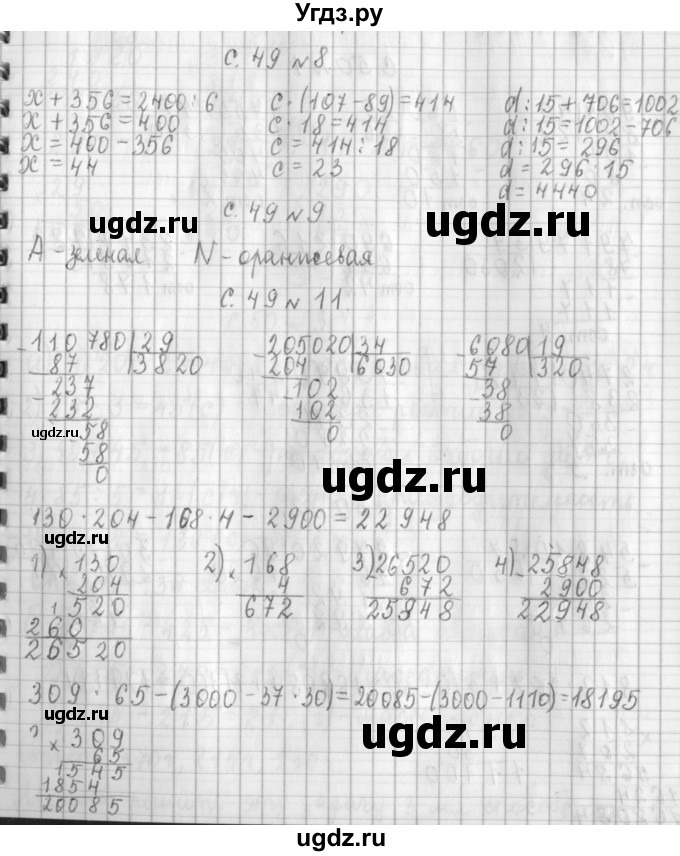 Угдз.ру
с. 49 № 8
x + 356 = 2400 : 6
x + 356 = 400
x = 400 - 356
x = 44
c · (107 - 89) = 414
c · 18 = 414
c = 414 : 18
c = 23
d : 15 + 706 = 1002
d : 15 = 1002 - 706
d : 15 = 296
d = 296 · 15
d = 4440
ugdz.ru
ugdz.ru
с. 49 № 9
А - зеленая N - оранжевая
с. 49 № 11
110 780 | 29
87 | 3820
237
232
58
58
0
205020 | 34
204 | 6030
102
102
0
6080 | 19
57 | 320
38
38
0
ugdz.ru
ugdz.ru
130 · 204 - 168 · 4 - 2900 = 22 948
1) × 130
204
520
260
26520
2) × 168
4
672
3) - 26520
672
25848
4) - 25848
2900
22948
ugdz.ru
ugdz.ru
309 · 65 - (3000 - 37 · 30) = 20085 - (3000 - 1110) = 18195
ugdz.ru
ugdz.ru
× 309
65
1545
1854
20085
ugdz.ru
ugdz.ru